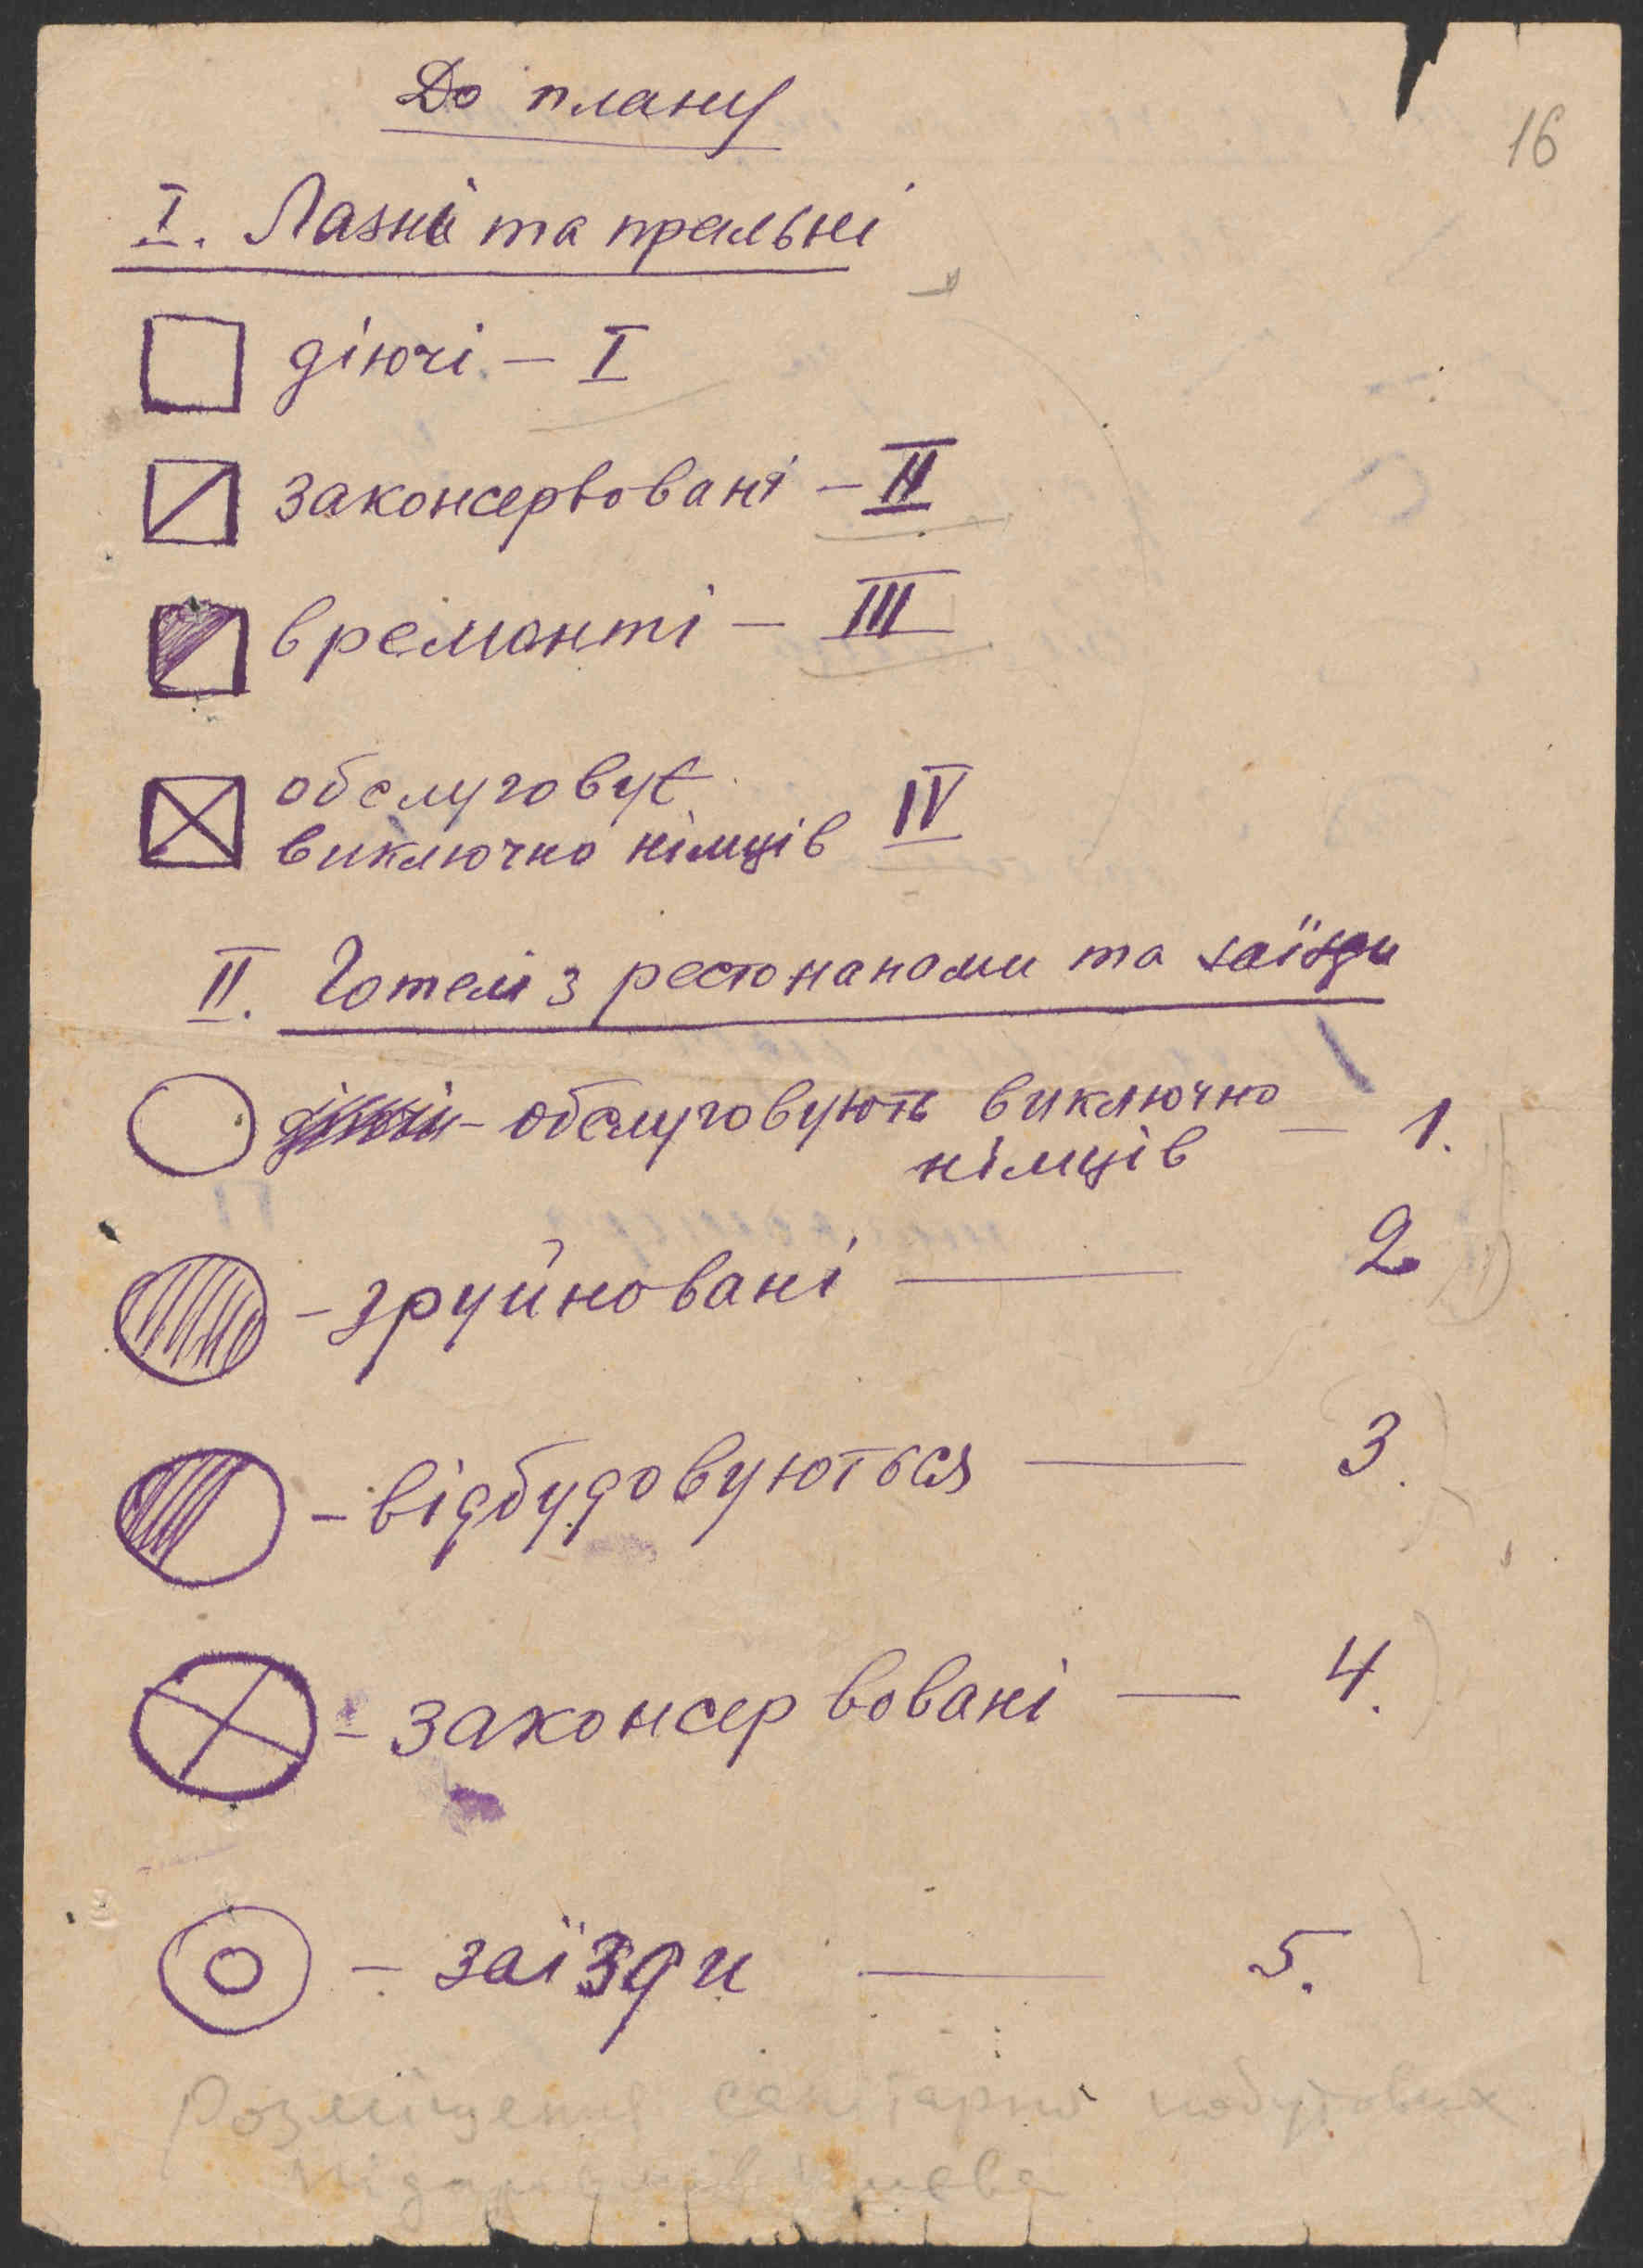 До плану
16
I. Лазні та пральні
діючі – I
законсервовані – II
в ремонті – III
обслуговує
виключно німців IV
II. Готелі з рестонанами та заїзди
діючі – обслуговують виключно
німців — 1.
– зруйновані — 2
– відбудовуються — 3.
– законсервовані — 4.
– заїзди — 5.
Розміщення санітарно побутових
Києва